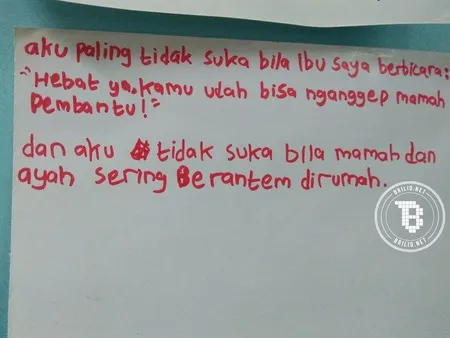 aku paling tidak suka bila Ibu saya berbicara:
"Hebat ya, kamu udah bisa nganggep mamah
Pembantu!"
dan aku tidak suka bila mamah dan
ayah sering Berantem dirumah.
BRILIO.NET
BRILIO.NET